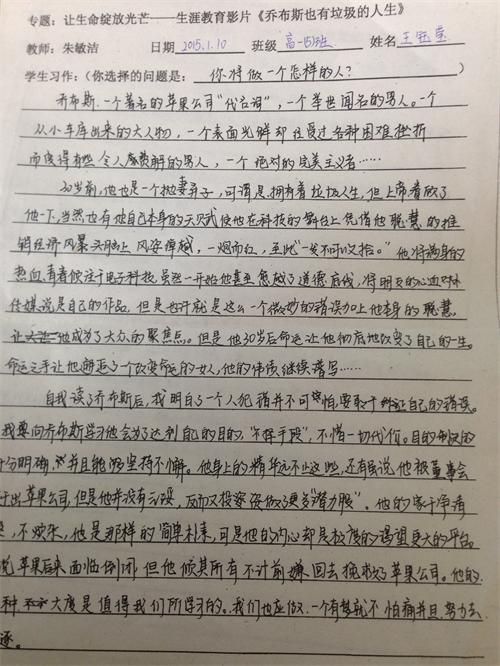 专题：让生命绽放光芒——生涯教育影片《乔布斯也有垃圾的人生》
教师：朱敏洁 日期 2015.1.10 班级 高一(5)班 姓名 王
学生习作：（你选择的问题是： 你将做一个怎样的人？ ）
乔布斯.一个著名的苹果公司“代名词”，一个举世闻名的男人。一个
从小车库出来的大人物，一个表面光鲜却经受过各种困难挫折
而变得有些令人费解的男人，一个绝对的完美主义者……
30岁前，他也是一个抛妻弃子，可谓是拥有着垃圾人生，但上帝眷顾了
他一下，当然也有他自己本身的天赋使他在科技的舞台上凭借他聪慧的推
销经济风暴头脑上风姿绰越，一炮而红，至此“一发不可收拾。”他将满身的
热血青春倾注于电子科技.虽然一开始他甚至忽越了道德底线，将朋友的心血对外
传媒说是自己的作品，但是也许就是这么一个微妙的错误加上他本身的聪慧，
让他成为了大众的聚焦点。但是他30岁后命运让他彻底地改变了自己的一生。
命运之手让他邂逅了一个改变命运的女人，他的伟绩继续谱写……
自我读了乔布斯后，我明白了一个人犯错并不可怕，要敢于纠正自己的错误。
我要向乔布斯学习他会为了达到自己的目的，“不择手段”，不惜一切代价。目的制定的
十分明确，并且能够坚持不懈。他身上的精华远不止这些，还有虽说他被董事会
出苹果公司，但是他并没有，反而又投资做这更多“潜力股”。他的家干净清
，不欢张，他是那样的简单朴素，可是他的内心却是极度的渴望更大的平台。
说苹果后来面临倒闭，但他倾其所有不计前嫌回去挽救了苹果公司。他的
种大度是值得我们所学习的。我们也应做.一个有梦就不怕痛并且努力去
逐。